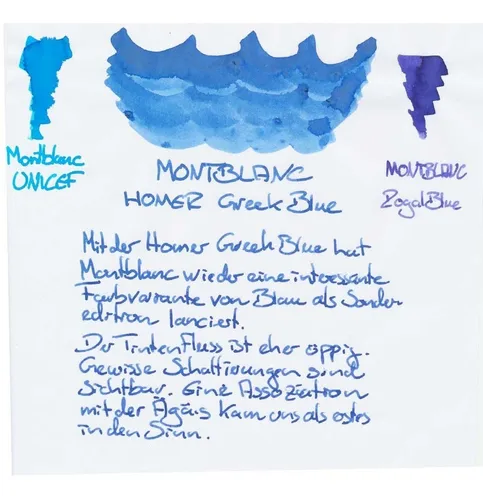 Montblanc
UNICEF
MONTBLANC
HOMER Greek Blue
MONTBLANC
Royal Blue
Mit der Homer Greek Blue hat
Montblanc wieder eine interessante
Farbvariante von Blau als Sonder
edition lanciert.
Der Tintenfluss ist eher üppig.
Gewisse Schattierungen sind
sichtbar. Eine Assoziation
mit der Ägäis kam uns als estes
in den Sinn.